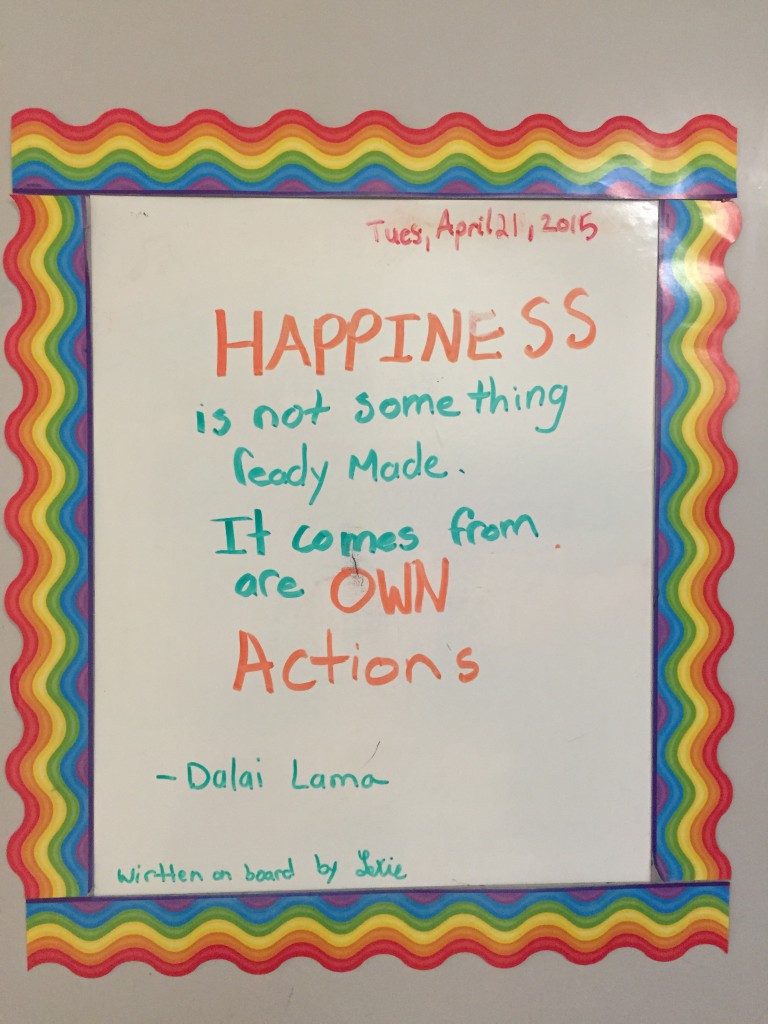 Tues, April 21, 2015
HAPPINESS
is not something
ready Made.
It comes from
are OWN
Actions
- Dalai Lama
wirtten on board by Lexie